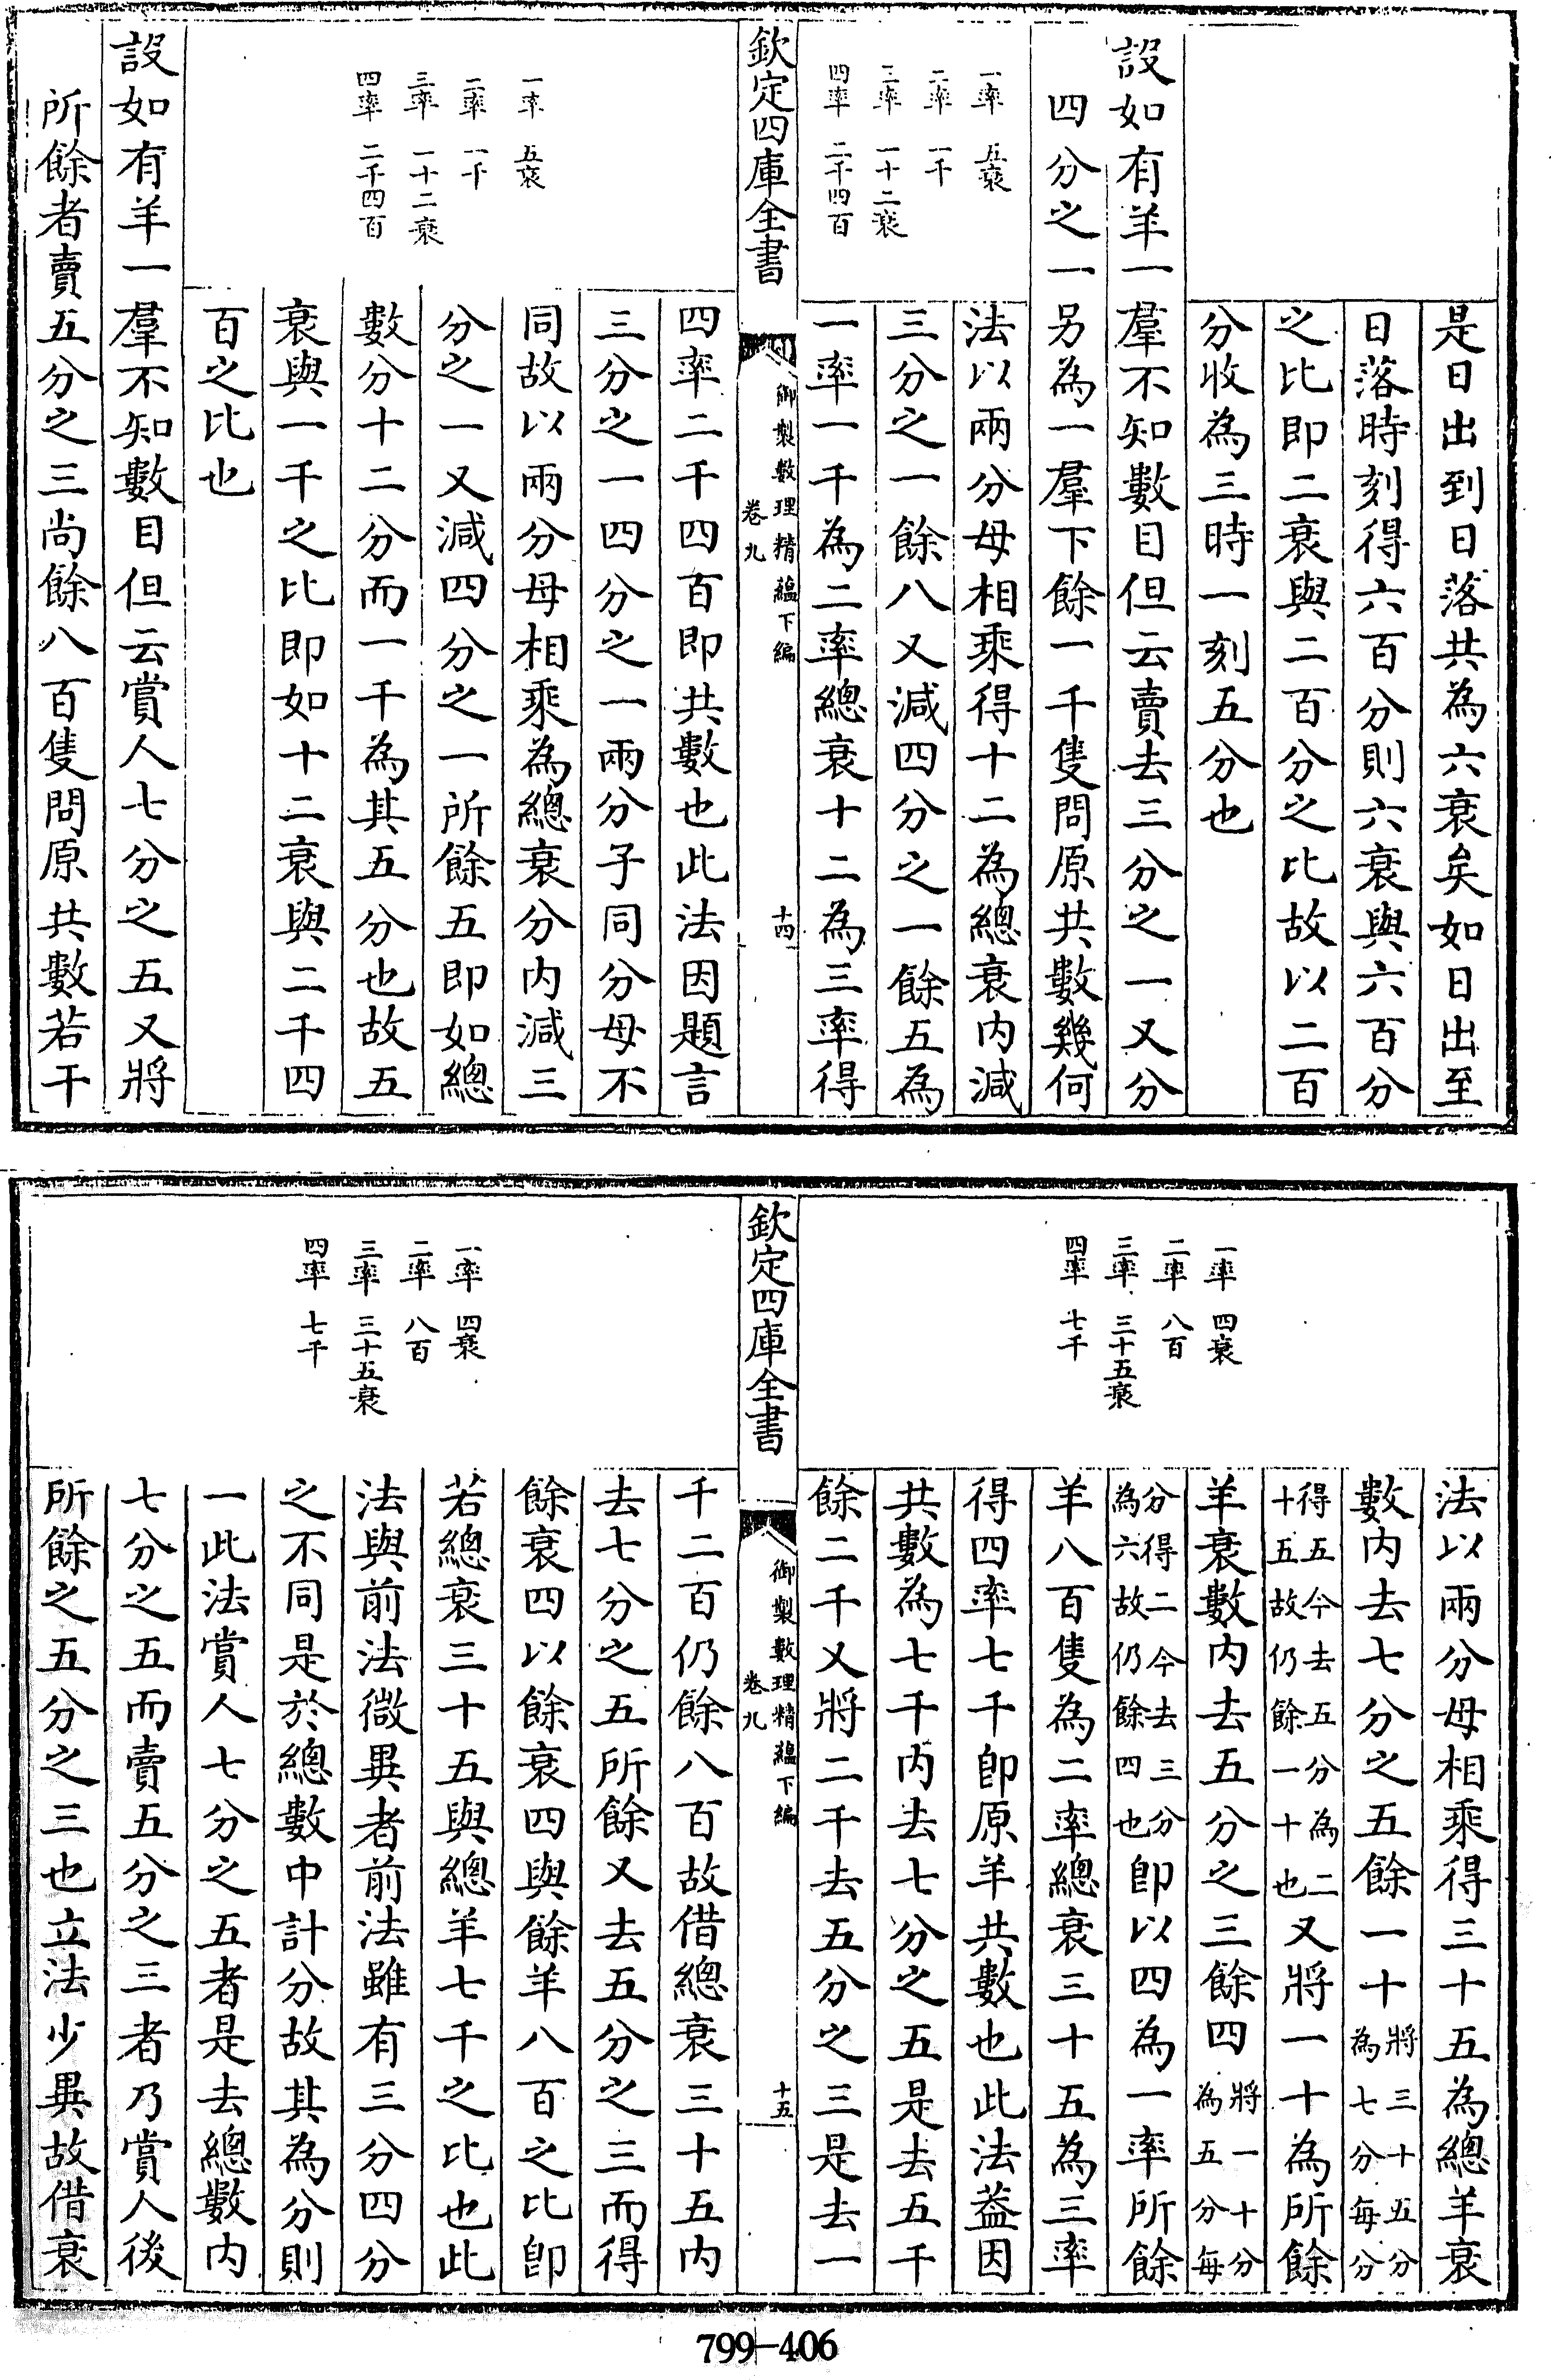 是日出到日落共為六衰矣如日出至
日落時刻得六百分則六衰與六百分
之比即二衰與二百分之比故以二百
分收為三時一刻五分也
設如有羊一羣不知數目但云賣去三分之一又分
四分之一另為一羣下餘一千隻問原共數幾何
一率 五衰
二率 一千
三率 一十二衰
四率 二千四百
法以兩分母相乘得十二為總衰内減
三分之一餘八又減四分之一餘五為
一率一千為二率總衰十二為三率得
欽定四庫全書
御製數理精蘊下編
卷九
十四
四率二千四百即共數也此法因題言
三分之一四分之一兩分子同分母不
同故以兩分母相乘為總衰分内減三
分之一又減四分之一所餘五即如總
數分十二分而一千為其五分也故五
衰與一千之比即如十二衰與二千四
百之比也
一率 五衰
二率 一千
三率 一十二衰
四率 二千四百
設如有羊一羣不知數目但云賞人七分之五又將
所餘者賣五分之三尚餘八百隻問原共數若干
法以兩分母相乘得三十五為總羊衰
數内去七分之五餘一十將三十五分為七分每分
得五今去五分為二十五故仍餘一十也又將一十為所餘
羊衰數内去五分之三餘四將一十分為五分每
分得二今去三分為六故仍餘四也即以四為一率所餘
羊八百隻為二率總衰三十五為三率
得四率七千即原羊共數也此法葢因
共數為七千内去七分之五是去五千
餘二千又將二千去五分之三是去一
一率 四衰
二率 八百
三率 三十五衰
四率 七千
欽定四庫全書
御製數理精蘊下編
卷九
十五
千二百仍餘八百故借總衰三十五内
去七分之五所餘又去五分之三而得
餘衰四以餘衰四與餘羊八百之比即
若總衰三十五與總羊七千之比也此
法與前法微異者前法雖有三分四分
之不同是於總數中計分故其為分則
一此法賞人七分之五者是去總數内
七分之五而賣五分之三者乃賞人後
所餘之五分之三也立法少異故借衰
一率 四衰
二率 八百
三率 三十五衰
四率 七千
799-406